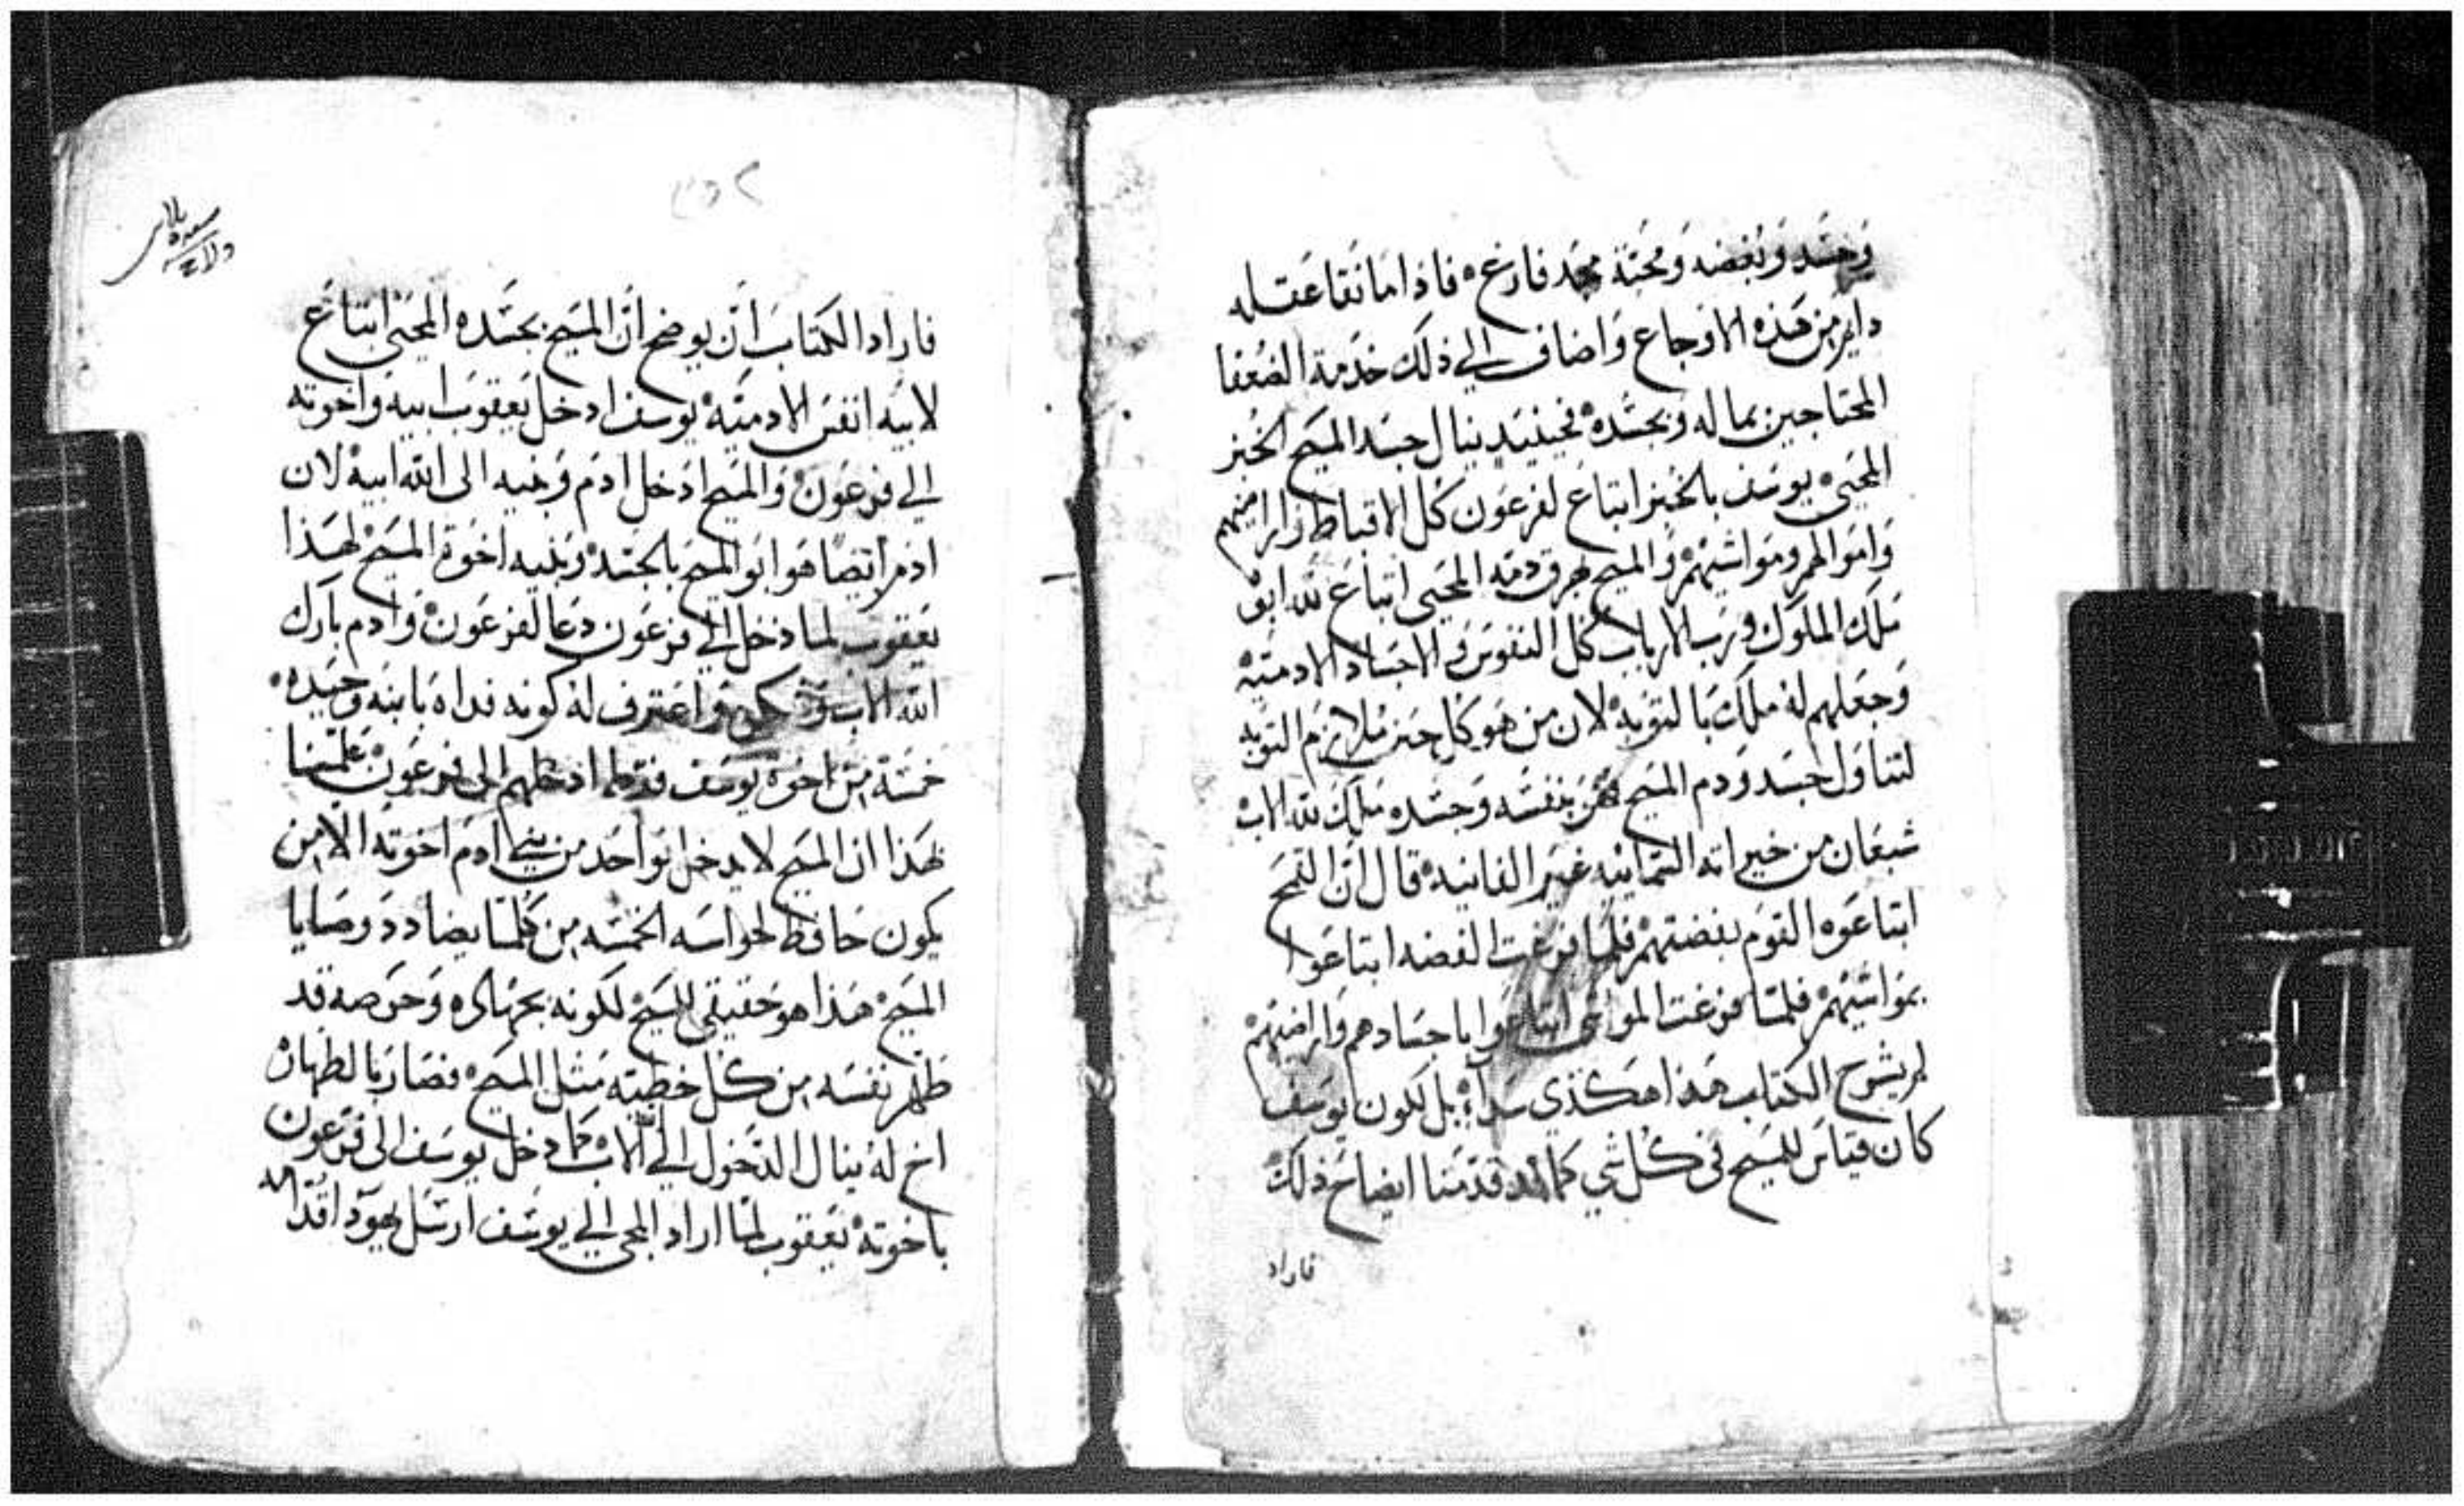 وحسد وبغضه ومحبة مجد فارغ فاذا ما نقا عقله
دايم من هذه الاوجاع واضاف الي ذلك خدمة الضعفا
المحتاجين بماله وبجسده فحينيد ينال جسد المسيح الخبز
المحيي يوسف بالخبز ابتاع لفرعون كل الاقباط واراضيهم
واموالهم ومواشيهم والمسيح بهرق دمه المحيي ابتاع لله ابوه
ملك الملوك ورب الارباب كل النفوس والاجساد الادميه
وجعلهم له ملك بالتوبه لان من هو كل حين ملازم التوبه
لتناول جسد ودم المسيح فهو بنفسه وجسده ملك لله الاب
شبعان من خيراته السمايه غير الفانيه قال ان القمح
ابتاعوه القوم بفضتهم فلما فرغت الفضه ابتاعوا
بمواشيهم فلما فرغت المواشي ابتاعوا باجسادهم واراضيهم
لم يشرح الكتاب هذا هكذي سدا بل لكون يوسف
كان قياس للمسيح في كل شي كما قدمنا ايضاح ذلك
فاراد
فاراد الكتاب ان يوضح ان المسيح بجسده المحيي ابتاع
لابيه انفس الادميه يوسف ادخل يعقوب ابيه واخوته
الي فرعون والمسيح ادخل ادم وبنيه الى الله ابيه لان
ادم ايضا هو ابو المسيح بالجسد وبنيه اخوة المسيح لهذا
يعقوب لما دخل الي فرعون دعا لفرعون وادم بارك
الله الاب واعترف له كونه فداه بابنه وحيده
خمسة من اخوة يوسف فقط ادخلهم الى فرعون علمنا
بهذا ان المسيح لا يدخل نوا احد من بني ادم اخوته الا من
يكون حافظ لحواسه الخمسه من كلما يضادد وصايا
المسيح هذا هو حقيقي للمسيح لكونه بجهاده وحرصه قد
طهر نفسه من كل خطيته مثل المسيح فصار بالطهارة
اخ له ينال الدخول الي الله الاب كما دخل يوسف الى فرعون
باخوته يعقوب لما اراد المجي الي يوسف ارسل يهودا قدامه